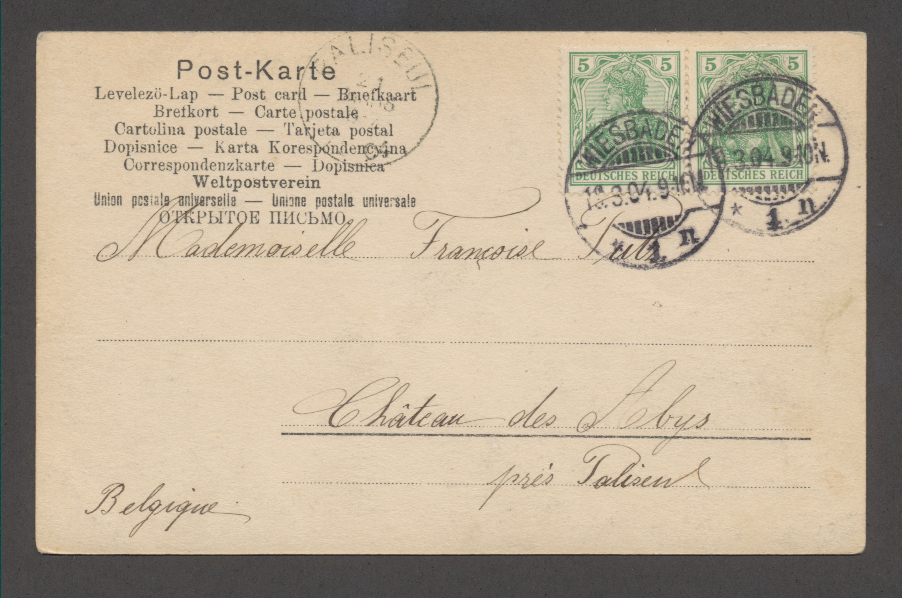 Post-Karte
Levelezö-Lap — Post card — Briefkaart
Brefkort — Carte postale
Cartolina postale — Tarjeta postal
Dopisnice — Karta Korespondencyjna
Correspondenzkarte — Dopisnica
Weltpostverein
Union postale universelle — Unione postale universale
ОТКРЫТОЕ ПИСЬМО
PALISEUL
5 5
DEUTSCHES REICH
5 5
DEUTSCHES REICH
WIESBADEN
3.04.9-10N
* 1. n
WIESBADEN
3.04.9-10N
* 1. n
Mademoiselle Françoise
Château des Abys
près Paliseul
Belgique